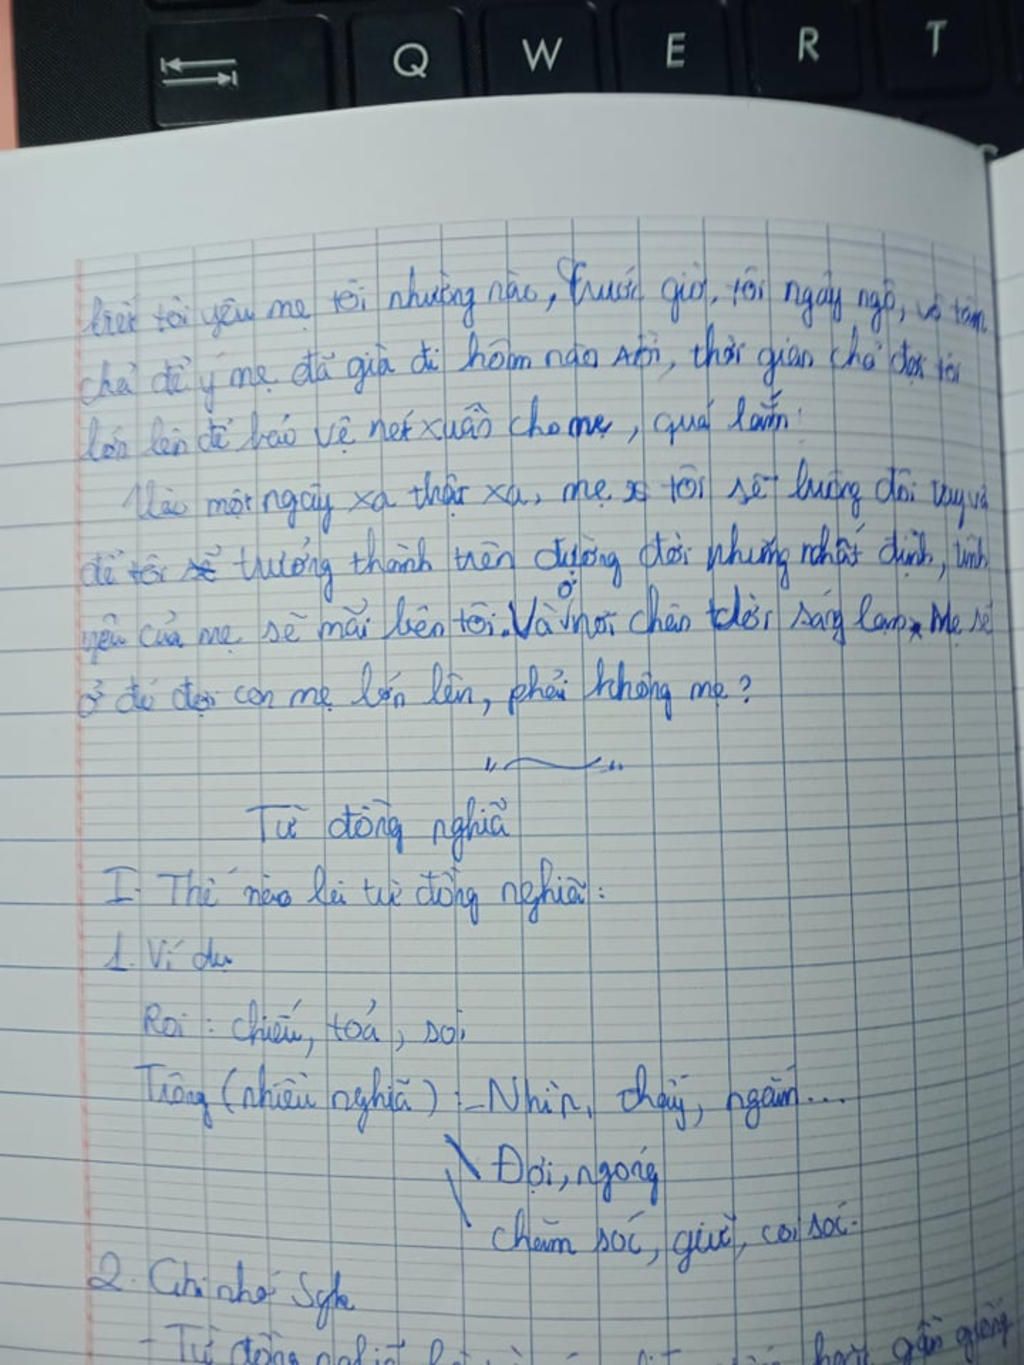 Q W E R T
biết tôi yêu mẹ tôi nhường nào, Trước giờ, tôi ngây ngô, vô tâm
chả để ý mẹ đã già đi hôm nào rồi, thời gian chả đợi tôi
lớn lên để bảo vệ nét xuân cho mẹ, quá lắm!
Vào một ngày xa thật xa, mẹ tôi sẽ buông đôi tay và
để tôi trưởng thành trên đường đời nhưng nhất định, tình
yêu của mẹ sẽ mãi bên tôi. Và ở nơi chân trời sáng lạm, Mẹ sẽ
ở đó đợi con mẹ lớn lên, phải không mẹ?
Từ đồng nghĩa
I- Thế nào là từ đồng nghĩa:
1. Ví dụ
Rọi: chiếu, toả, soi
Trông (nhiều nghĩa): - Nhìn, thấy, ngắm...
Đợi, ngóng
chăm sóc, giữ, coi sóc.
2. Ghi nhớ Sgk
- Từ đồng nghĩa là gần giống